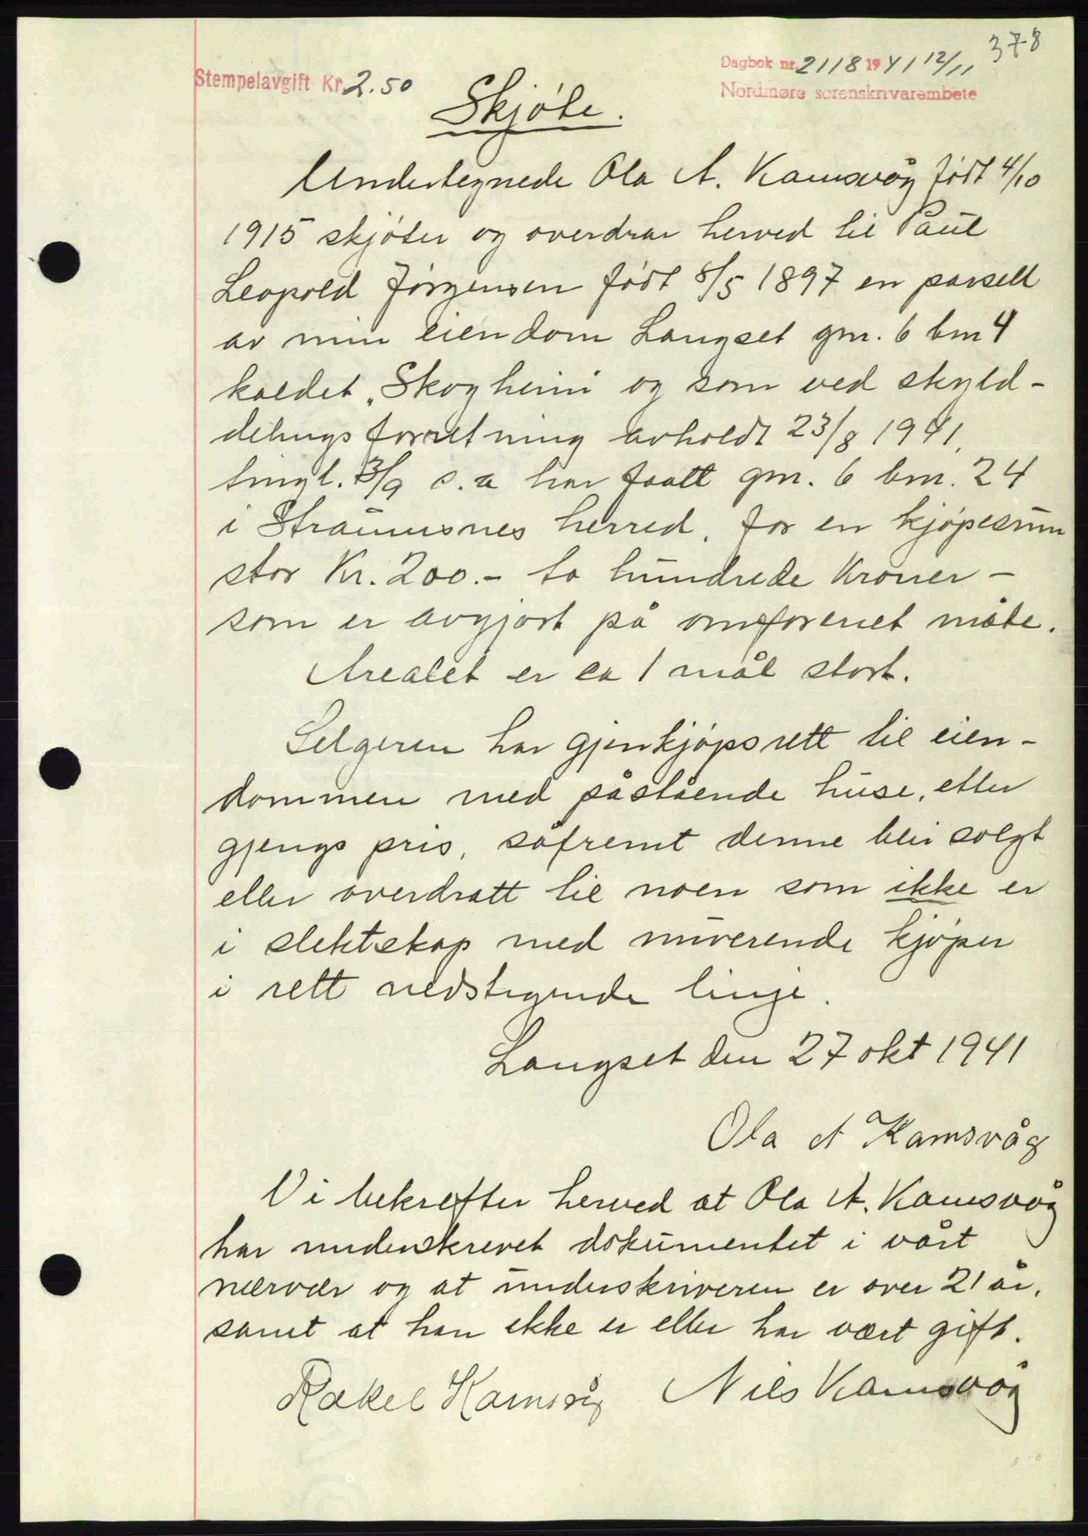 378
Stempelavgift Kr. 2.50
Dagbok nr. 2118 1941 12/11
Nordmøre sorenskrivarembete
Skjøte.
Undertegnede Ola A. Kamsvåg født 4/10
1915 skjøter og overdrar herved til Paul
Leopold Jørgensen født 8/5 1897 en parsell
av min eiendom Langset gnr. 6 bnr 4
kaldet "Skogheim" og som ved skyld-
delingsforretning avholdt 23/8 1941,
tingl. 3/9 s.a har faatt gnr. 6 bnr. 24
i Straumsnes herred, for en kjøpesum
stor Kr. 200.- to hundrede Kroner -
som er avgjort på omforenet måte.
Arealet er ca 1 mål stort.
Selgeren har gjenkjøpsrett til eien-
dommen med påstående huse, etter
gjengs pris, såfremt denne blir solgt
eller overdratt til noen som ikke er
i slektskap med nuverende kjøper
i rett nedstigende linje.
Langset den 27 okt 1941
Ola A Kamsvåg
Vi bekrefter herved at Ola A. Kamsvåg
har underskrevet dokumentet i vårt
nærvær og at underskriveren er over 21 år,
samt at han ikke er eller har vært gift.
Rakel Kamsvåg Nils Kamsvåg